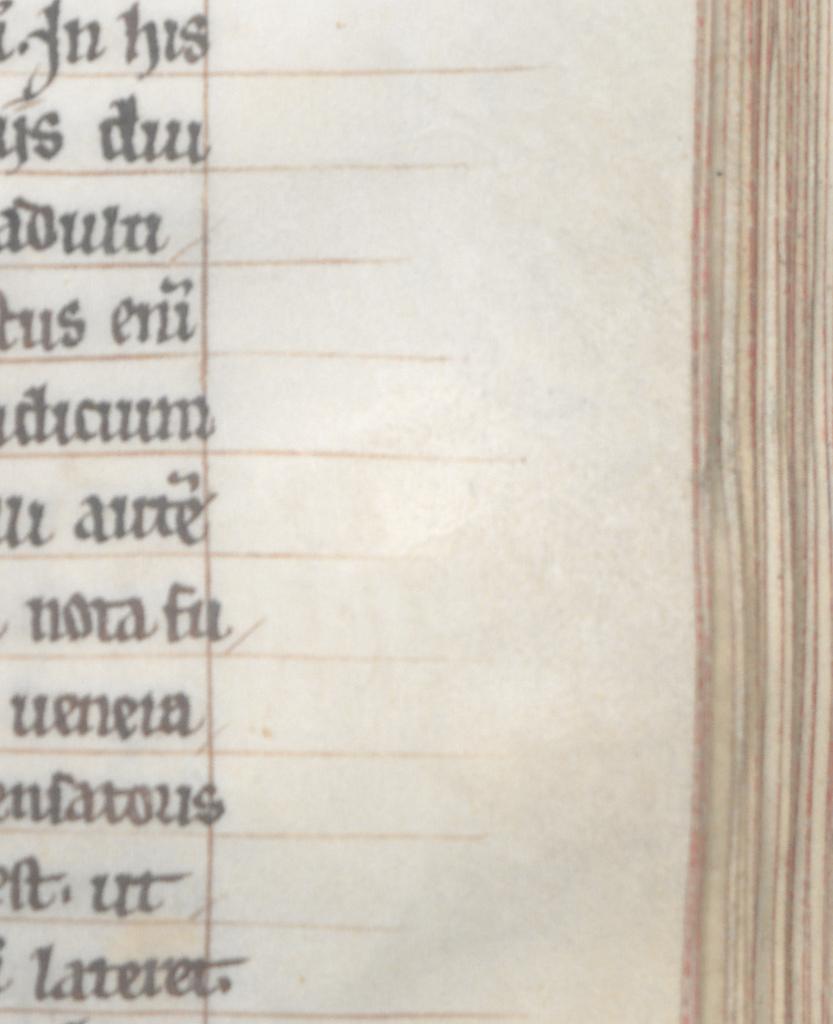 i. In his
ijs diu
adulti
tus eni᷉
udicium
ui aute᷉
nota fu
ueneta
ensatoris
est. ut
i lateret.